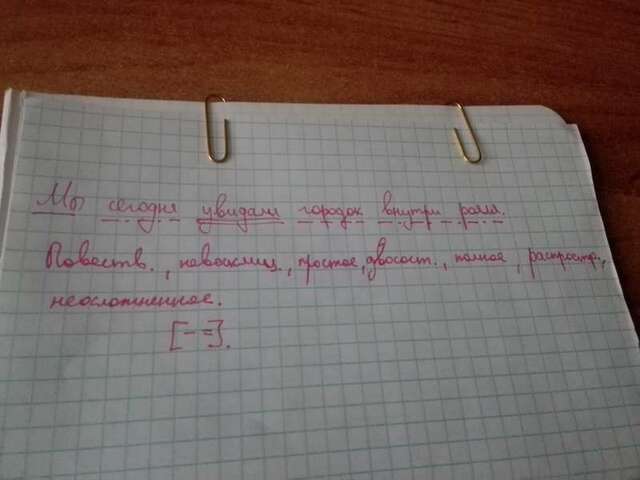 Мы сегодня увидали городок внутри рояля.
Повеств., невосклиц., простое, двосост., полное, распростр.,
неосложненное.
[– =].